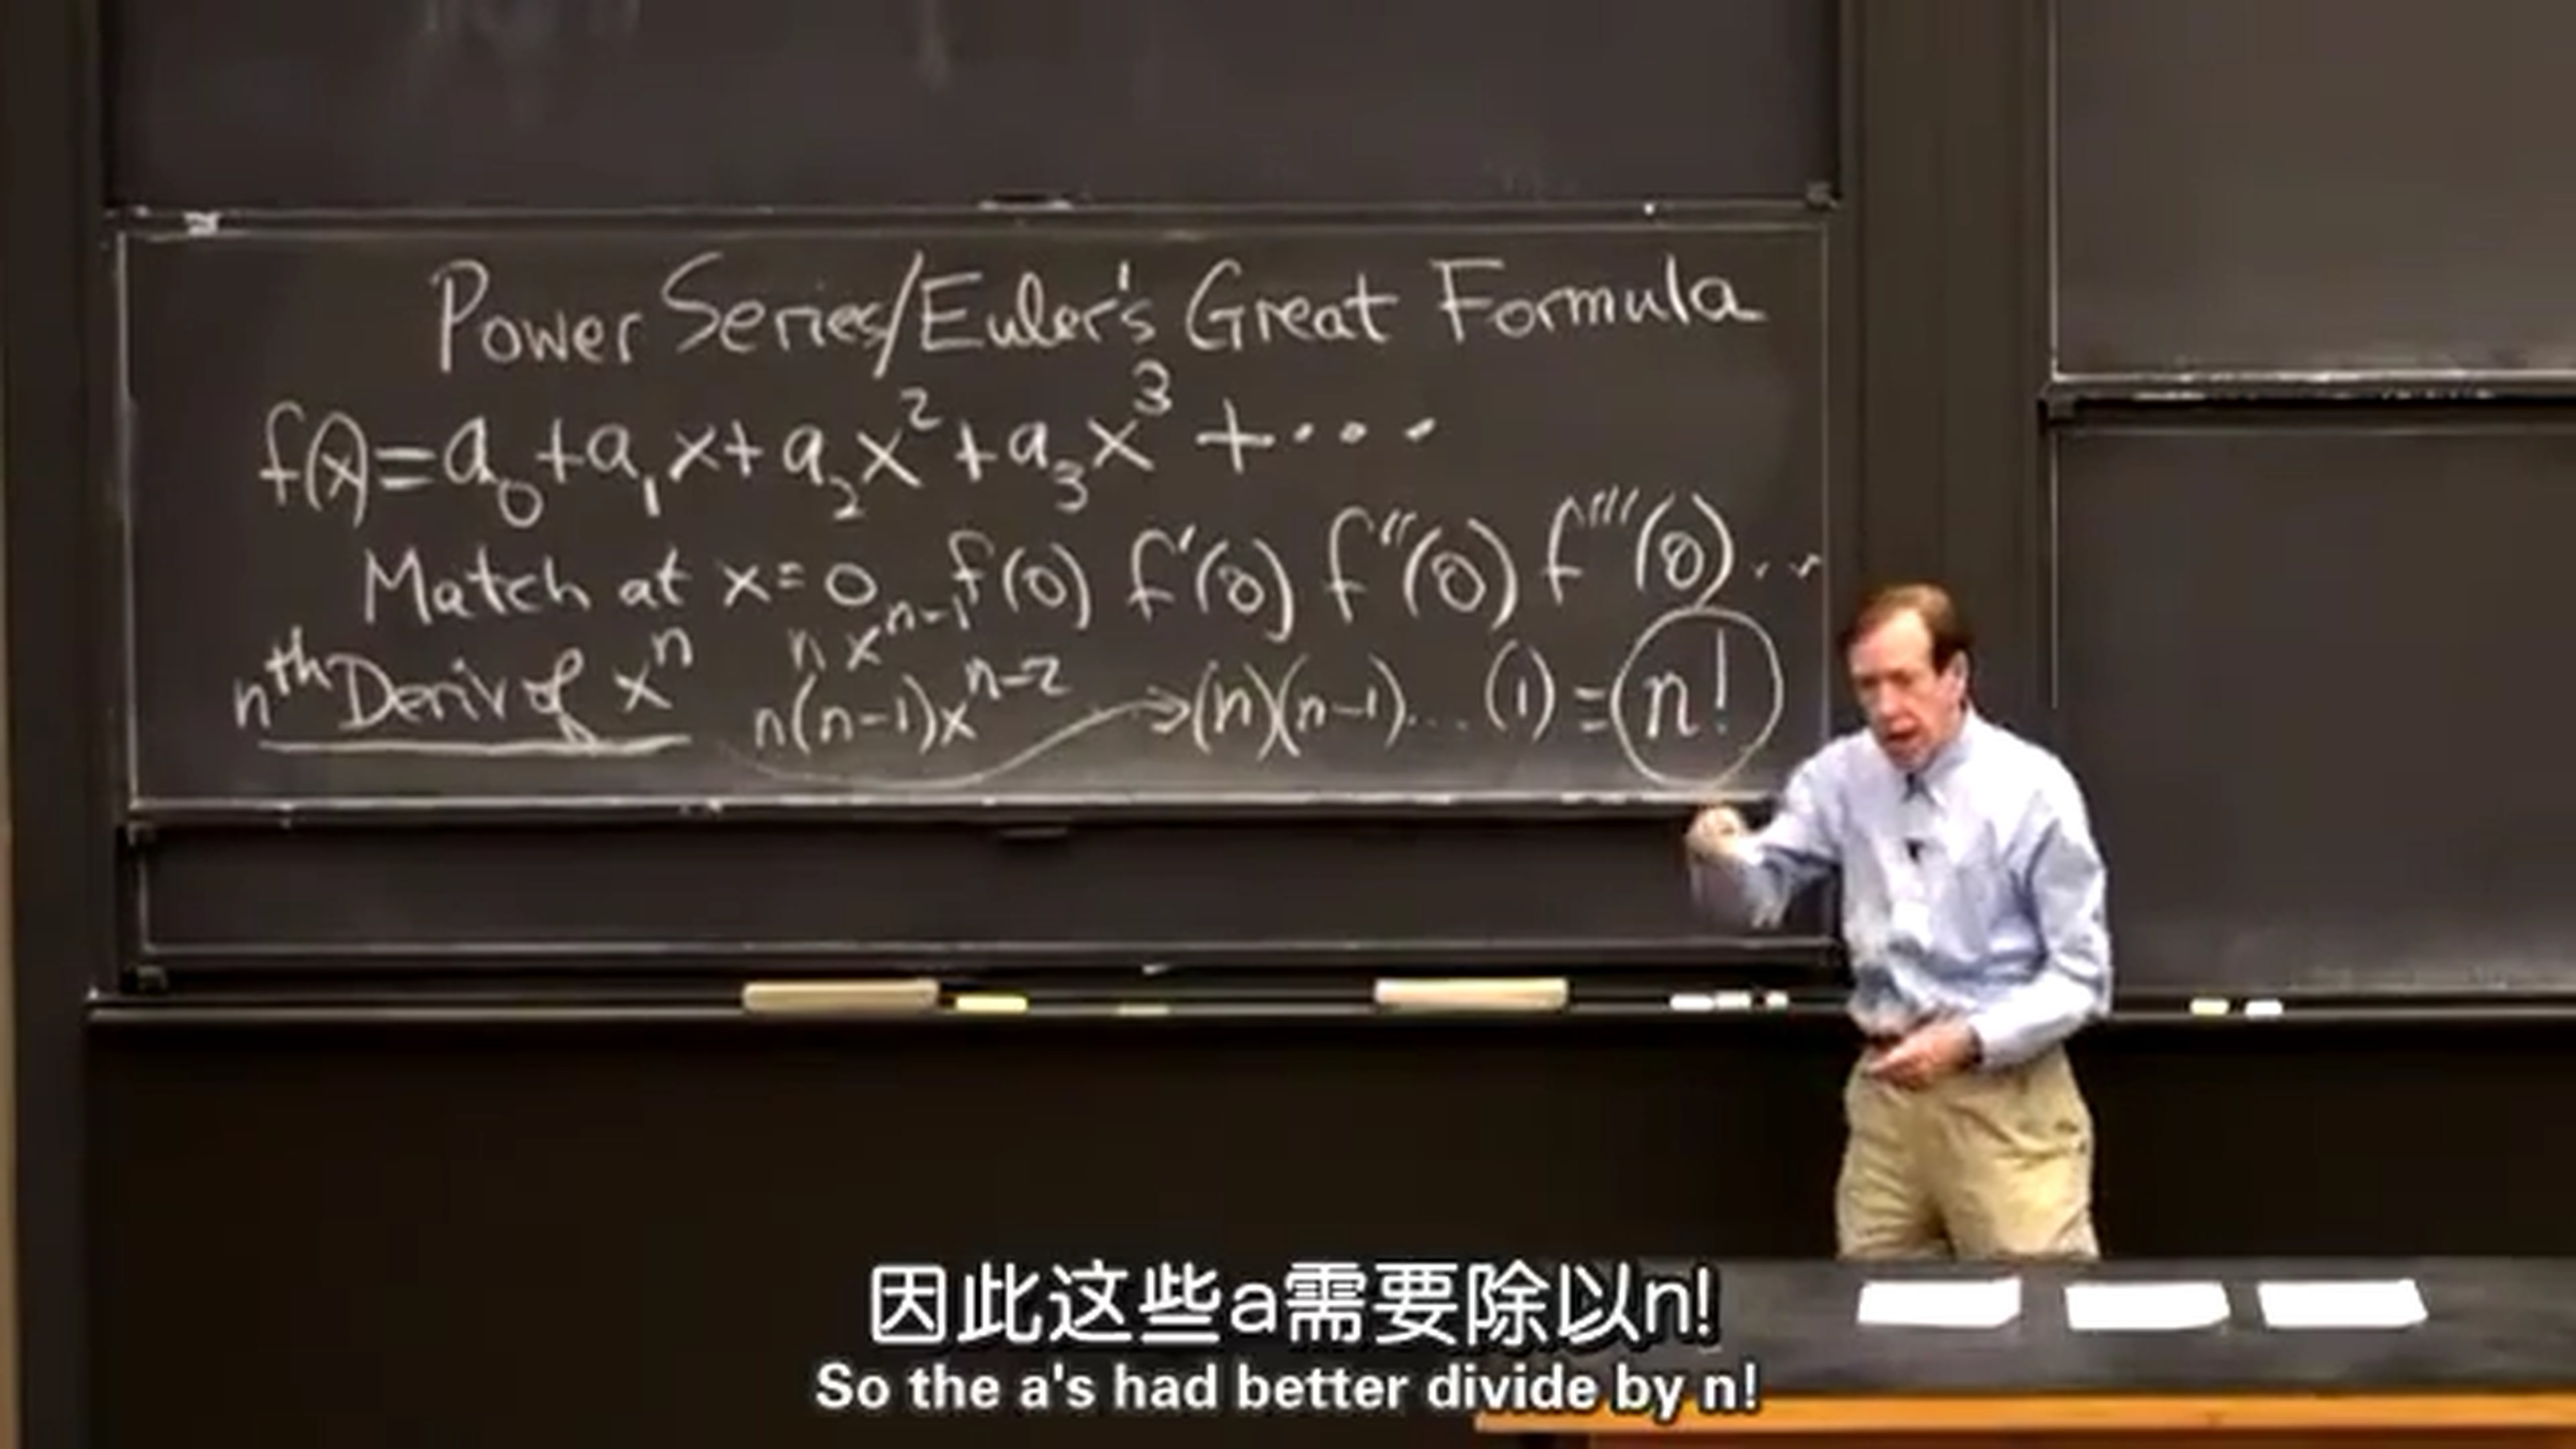 Power Series/Euler's Great Formula
f(x)=a₀+a₁x+a₂x²+a₃x³+···
Match at x=0 f(0) f'(0) f''(0) f'''(0)...
nth Deriv of xⁿ nxⁿ⁻¹
n(n-1)xⁿ⁻² →(n)(n-1)...(1)=n!
因此这些a需要除以n!
So the a's had better divide by n!